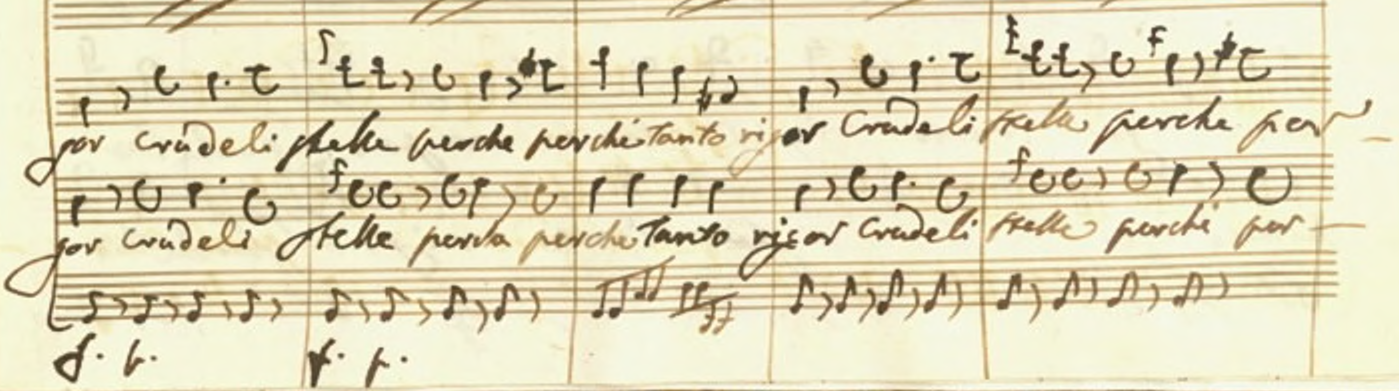 gor crudeli stelle perche perche tanto rigor Crudeli stelle perche per
gor crudeli stelle perche perche tanto rigor Crudeli stelle perche per
f. p. f. p.